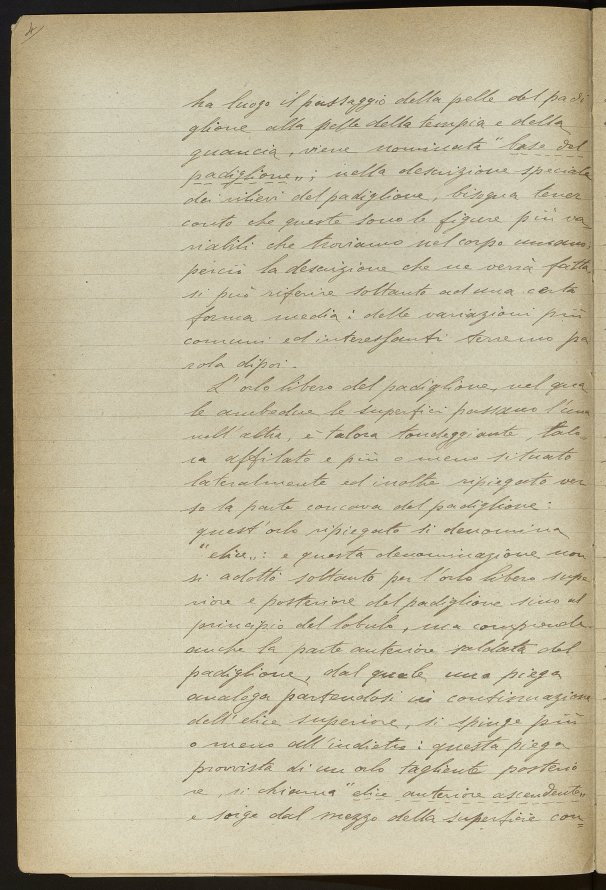 4)
ha luogo il passaggio della pelle del padi
glione alla pelle della tempia e della
guancia, viene nominata "base del
padiglione„; nella descrizione speciale
dei rilievi del padiglione, bisogna tener
conto che queste sono le figure più va
riabili che troviamo nel corpo umano;
perciò la descrizione che ne verrà fatta
si può riferire soltanto ad una certa
forma media: delle variazioni più
comuni ed interessanti terremo pa
rola dipoi.
L'orlo libero del padiglione, nel qua
le ambedue le superfici passano l'una
nell'altra, è talora tondeggiante, talo
ra affilato e più o meno situato
lateralmente ed inoltre ripiegato ver
so la parte concava del padiglione:
quest'orlo ripiegato si denomina
"elice„: e questa denominazione non
si adotta soltanto per l'orlo libero supe
riore e posteriore del padiglione sino al
principio del lobulo, ma comprende
anche la parte anteriore saldata del
padiglione, dal quale una piega
analoga partendosi in continuazione
dell'elice superiore, si spinge più
o meno all'indietro: questa piega
provvista di un orlo tagliente posterio
re, si chiama "elice anteriore ascendente„
e sorge dal mezzo della superficie con=